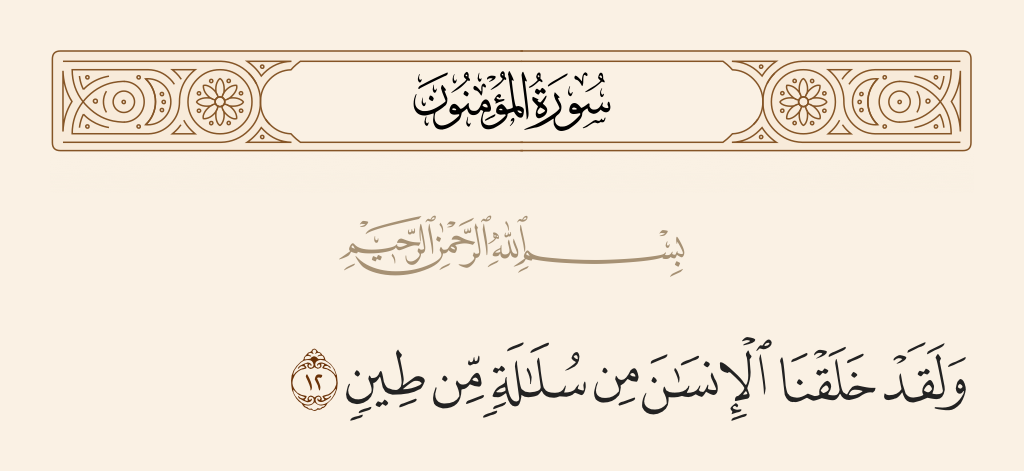 سُورَةُ المُؤْمِنُونَ
بِسْمِ ٱللَّهِ ٱلرَّحْمَٰنِ ٱلرَّحِيمِ
وَلَقَدْ خَلَقْنَا ٱلْإِنسَٰنَ مِن سُلَٰلَةٍ مِّن طِينٍ ١٢